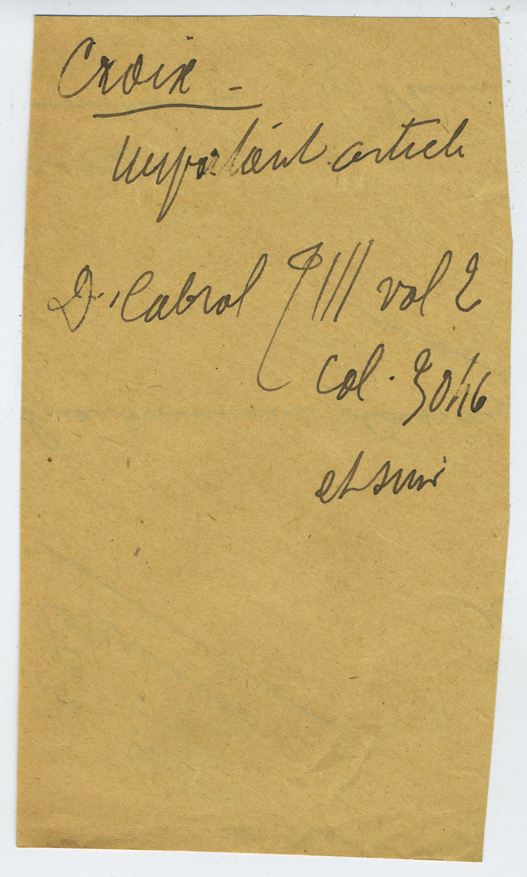 Croix -
Important article
D. Cabrol T III vol 2
Col. 3046
et suiv